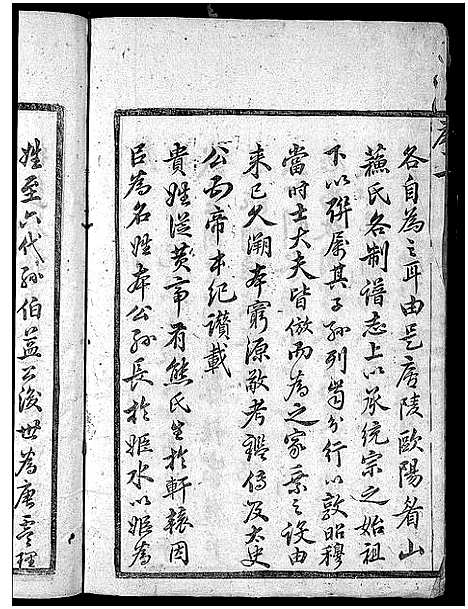 各自為之耳由是廬陵歐陽眉山
蘓氏各制譜志上以承統宗之始祖
下以聨屬其子孫列尚分行以敦昭穆
當時士大夫皆倣而為之家乗之設由
来已久溯本窮源敢考鑑傳及太史
公五帝本纪讃載
貴姓從黄帝有熊氏生於軒轅因
臣為名姓本公孫長於姬水以姬為
姓至六代孫伯益公後世為唐虞理